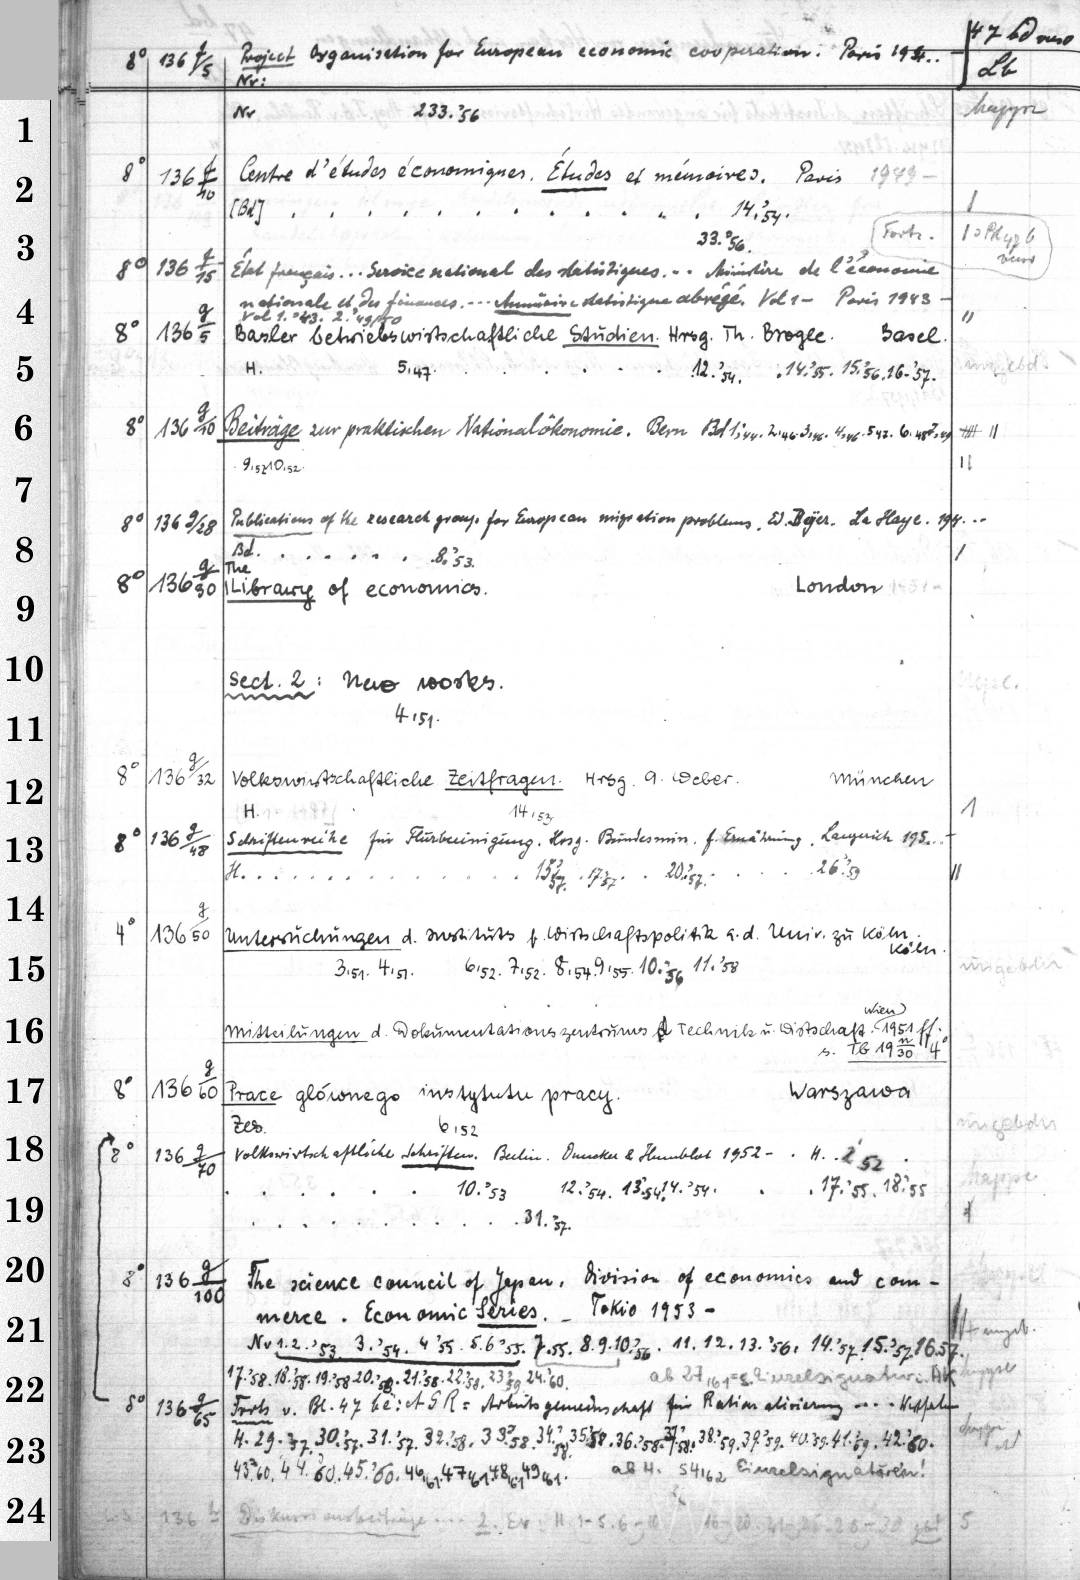 47 bd verso
8° 136 f/5 Project Organisation for European economic cooperation. Paris 195..
Nr: Lb
1 Nr 233.'56
2 8° 136 f/10 Centre d'études économiques. Études et mémoires. Paris 1949 -
[Bd] . . . . . . . . . . . 14.'54.
3 33.'56. Forts.
8° 136 f/15 État français... Service national des statistiques... Ministère de l'économie
4 nationale et des finances.... Annuaire statistique abrégé. Vol 1 - Paris 1943 -
Vol 1.'43. 2.'49/50
8° 136 g/5 Basler betriebswirtschaftliche Studien. Hrsg. Th. Brogle. Basel.
5 H. 5,47. . . . . 12.'54. .14.'55. 15.'56. 16.'57.
6 8° 136 g/10 Beiträge zur praktischen Nationalökonomie. Bern Bd 1,44. 2,46. 3,46. 4,46. 5,47. 6,48. 7,49
9,52 10,52
7
8° 136 g/28 Publications of the research group for European migration problems. Ed. Beijer. La Haye. 19..
8 Bd. . . . . . 8.'53.
The
9 8° 136 g/30 Library of economics. London
10 Sect. 2: New works.
11 4,51.
12 8° 136 g/32 Volkswirtschaftliche Zeitfragen. Hrsg. A. Weber. München
H. 14,53 1
13 8° 136 g/48 Schriftenreihe für Flurbereinigung. Hrsg. Bundesmin. f. Ernährung. Lengerich 195.. -
H. . . . . . . . 15.'57. .17.'57. . 20.'57. . . . 26.'59 ||
14
4° 136 g/50 Untersuchungen d. Instituts f. Wirtschaftspolitik a. d. Univ. zu Köln.
Köln.
15 3,51. 4,51. 6,52. 7,52. 8,54. 9,55. 10.'56 11.'58 ungebdn
Wien
16 Mitteilungen d. Dokumentationszentrums f Technik u. Wirtschaft. 1951 ff.
s. TB 19 n/30 4°
17 8° 136 g/60 Prace głównego instytutu pracy. Warszawa
Zes. 6,52 ungebdn
18 8° 136 g/70 Volkswirtschaftliche Schriften. Berlin. Duncker & Humblot 1952 - . H. 2.'52 .
. . . . . 10.'53 12.'54. 13.'54. 14.'54. . . 17.'55. 18.'55 Mappe
19 . . . . . . . . . . 31.'57.
20 8° 136 g/100 The science council of Japan. Division of economics and com-
merce. Economic Series. - Tokio 1953 -
21 Nr 1. 2.'53. 3.'54. 4.'55. 5. 6.'55. 7.55. 8. 9. 10.'56. 11. 12. 13.'56. 14.'57. 15.'57. 16.57. ungeb.
22 17.'58. 18.'58. 19.'58 20.'58. 21.'58. 22.'58. 23.'59 24.'60. ab 27,61 = s. Einzelsignatur.
8° 136 g/65 Forts v. Bl. 47 bei: AGR = Arbeitsgemeinschaft für Rationalisierung ....
23 H. 29.'57. 30.'57. 31.'57. 32.'58. 33.'58. 34.'58. 35.'58. 36.'58. 37.'58. 38.'59. 39.'59. 40.'59. 41.'59. 42.'60.
43.'60. 44.'60. 45.'60. 46,61 47,61 48,61 49,61. ab H. 54,62 Einzelsignaturen!
24 136 Diskussionsbeiträge .... 2. Ex: H 1-5. 6-10 5